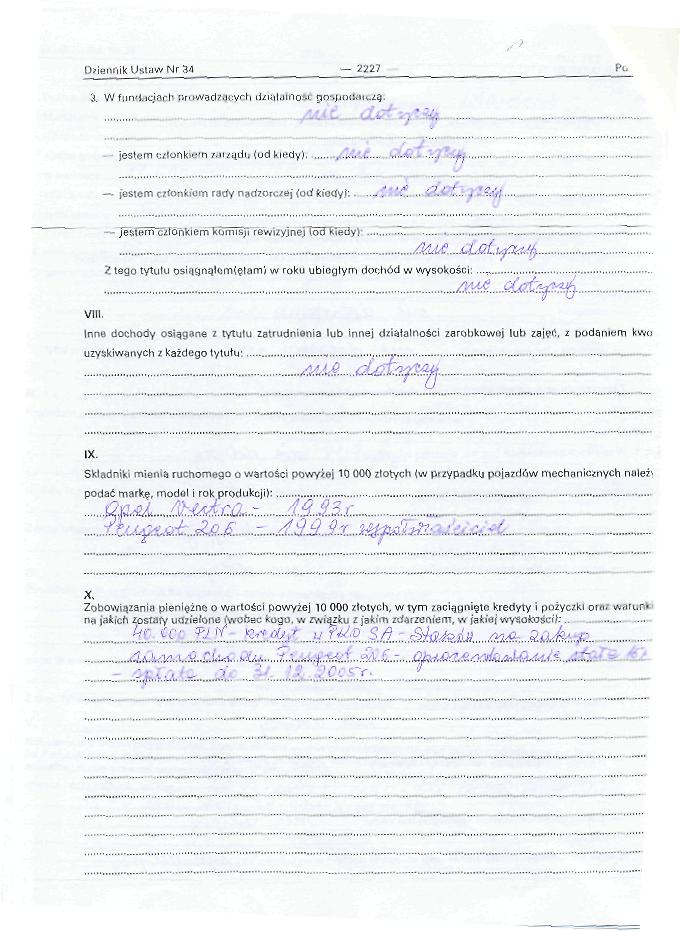 Dziennik Ustaw Nr 34 — 2227 — Po
3. W fundacjach prowadzących działalność gospodarczą:
nie dotyczy
— jestem członkiem zarządu (od kiedy): nie dotyczy
— jestem członkiem rady nadzorczej (od kiedy): nie dotyczy
— jestem członkiem komisji rewizyjnej (od kiedy):
nie dotyczy
Z tego tytułu osiągnąłem(ęłam) w roku ubiegłym dochód w wysokości:
nie dotyczy
VIII.
Inne dochody osiągane z tytułu zatrudnienia lub innej działalności zarobkowej lub zajęć, z podaniem kwo
uzyskiwanych z każdego tytułu:
nie dotyczy
IX.
Składniki mienia ruchomego o wartości powyżej 10 000 złotych (w przypadku pojazdów mechanicznych należy
podać markę, model i rok produkcji):
Opel Vectra - 1993r.
Peugeot 206 - 1999r współwłaściciel
X.
Zobowiązania pieniężne o wartości powyżej 10 000 złotych, w tym zaciągnięte kredyty i pożyczki oraz warunki
na jakich zostały udzielone (wobec kogo, w związku z jakim zdarzeniem, w jakiej wysokości):
40.000 PLN - kredyt w PKO SA - na zakup
samochodu Peugeot 206 - oprocentowanie stałe
- spłata do 31.12.2005r.